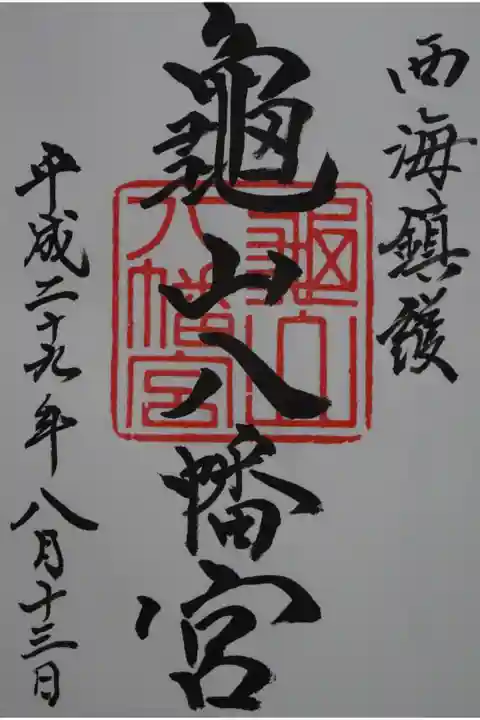 西海鎮護
龜山八幡宮
龜山
八幡宮
平成二十九年八月十三日